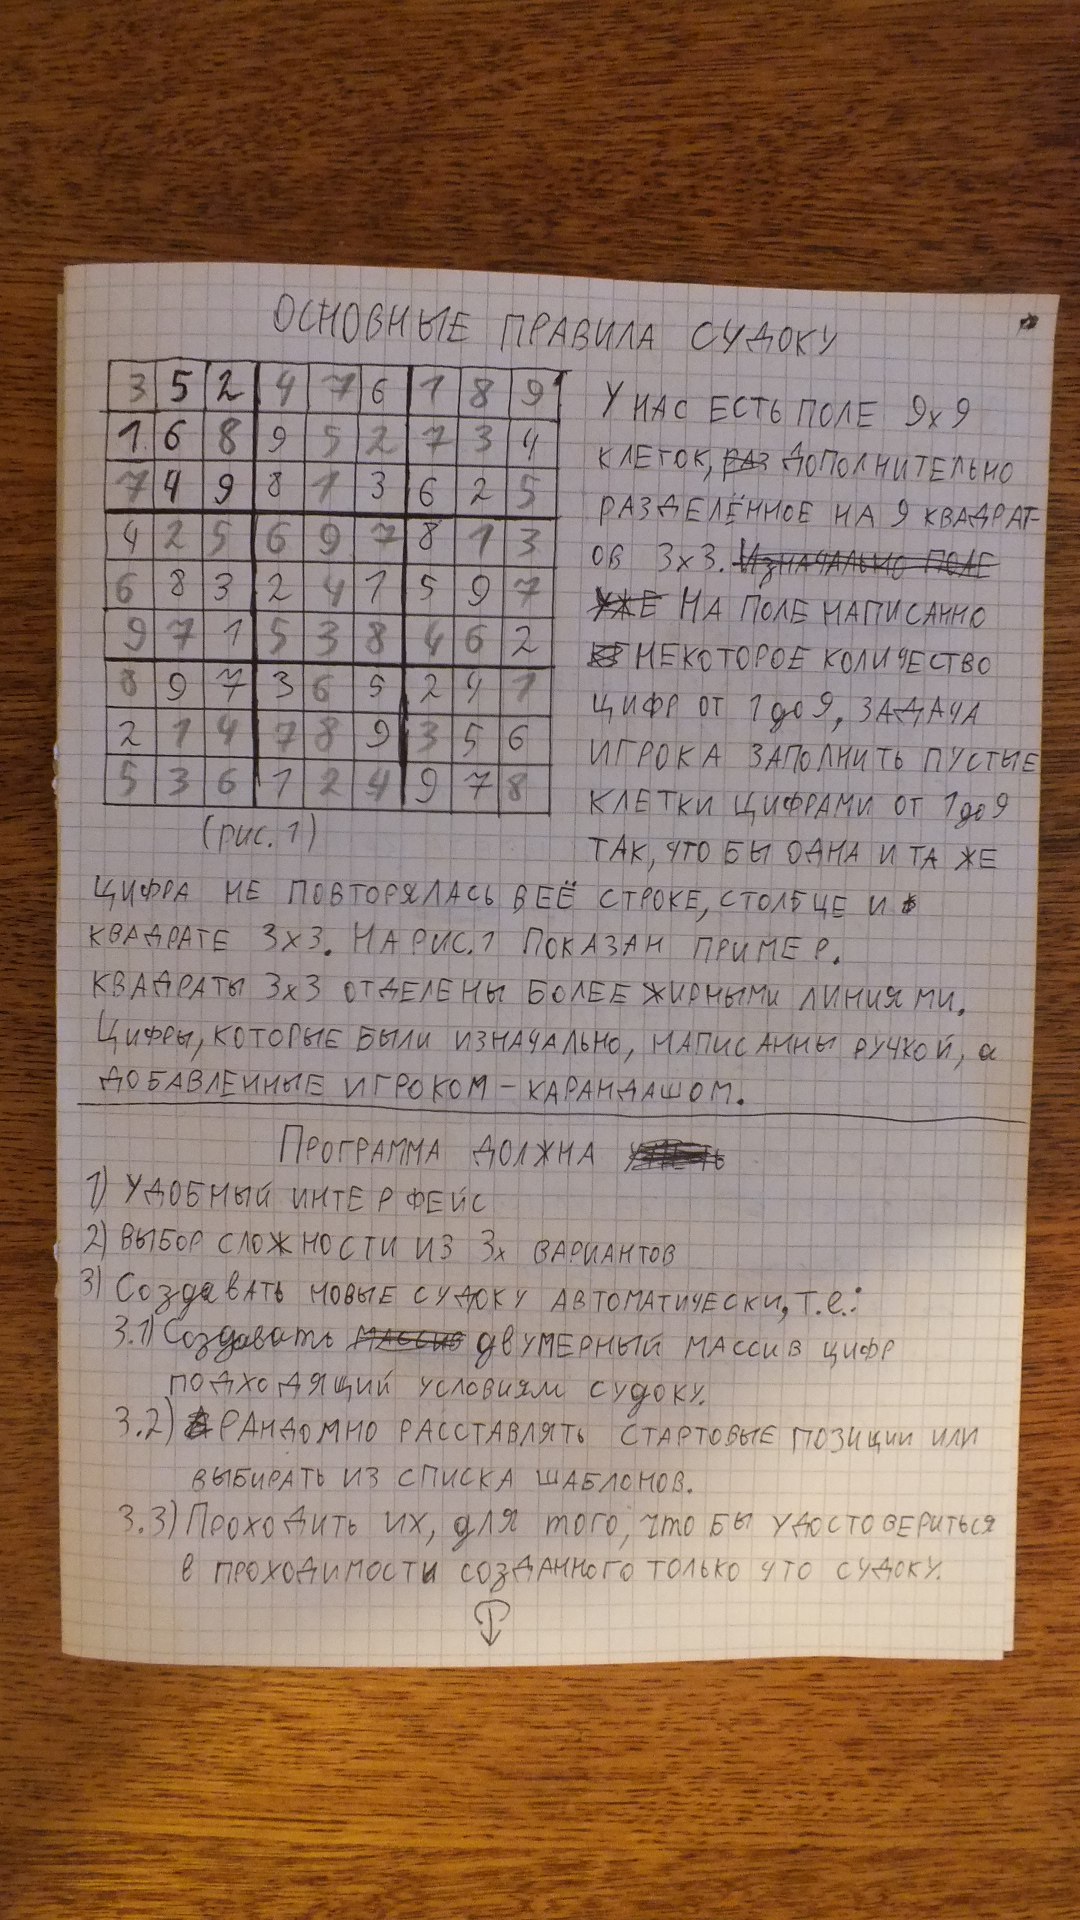 ОСНОВНЫЕ ПРАВИЛА СУДОКУ
3 5 2 4 7 6 1 8 9
1 6 8 9 5 2 7 3 4
7 4 9 8 1 3 6 2 5
4 2 5 6 9 7 8 1 3
6 8 3 2 4 1 5 9 7
9 7 1 5 3 8 4 6 2
8 9 7 3 6 5 2 4 1
2 1 4 7 8 9 3 5 6
5 3 6 1 2 4 9 7 8
(рис. 1)
У НАС ЕСТЬ ПОЛЕ 9х9
КЛЕТОК, РАЗ ДОПОЛНИТЕЛЬНО
РАЗДЕЛЁННОЕ НА 9 КВАДРАТ-
ОВ 3х3. ИЗНАЧАЛЬНО ПОЛЕ
УЖЕ НА ПОЛЕ НАПИСАННО
НЕКОТОРОЕ КОЛИЧЕСТВО
ЦИФР ОТ 1 до 9, ЗАДАЧА
ИГРОКА ЗАПОЛНИТЬ ПУСТЫЕ
КЛЕТКИ ЦИФРАМИ ОТ 1 до 9
ТАК, ЧТО БЫ ОДНА И ТА ЖЕ
ЦИФРА НЕ ПОВТОРЯЛАСЬ В ЕЁ СТРОКЕ, СТОЛБЦЕ И
КВАДРАТЕ 3х3. НА РИС.1 ПОКАЗАН ПРИМЕР.
КВАДРАТЫ 3х3 ОТДЕЛЕНЫ БОЛЕЕ ЖИРНЫМИ ЛИНИЯМИ.
ЦИФРЫ, КОТОРЫЕ БЫЛИ ИЗНАЧАЛЬНО, НАПИСАННЫ РУЧКОЙ, а
ДОБАВЛЕННЫЕ ИГРОКОМ – КАРАНДАШОМ.
ПРОГРАММА ДОЛЖНА
1) УДОБНЫЙ ИНТЕРФЕЙС
2) ВЫБОР СЛОЖНОСТИ ИЗ 3х ВАРИАНТОВ
3) СОЗДАВАТЬ НОВЫЕ СУДОКУ АВТОМАТИЧЕСКИ, Т.е.:
3.1) Создавать МАССИВ ДВУМЕРНЫЙ МАССИВ ЦИФР
ПОДХОДЯЩИЙ УСЛОВИЯМ СУДОКУ.
3.2) РАНДОМНО РАССТАВЛЯТЬ СТАРТОВЫЕ ПОЗИЦИИ ИЛИ
ВЫБИРАТЬ ИЗ СПИСКА ШАБЛОНОВ.
3.3) ПРОХОДИТЬ ИХ, ДЛЯ ТОГО, ЧТО БЫ УДОСТОВЕРИТЬСЯ
В ПРОХОДИМОСТИ СОЗДАННОГО ТОЛЬКО ЧТО СУДОКУ.